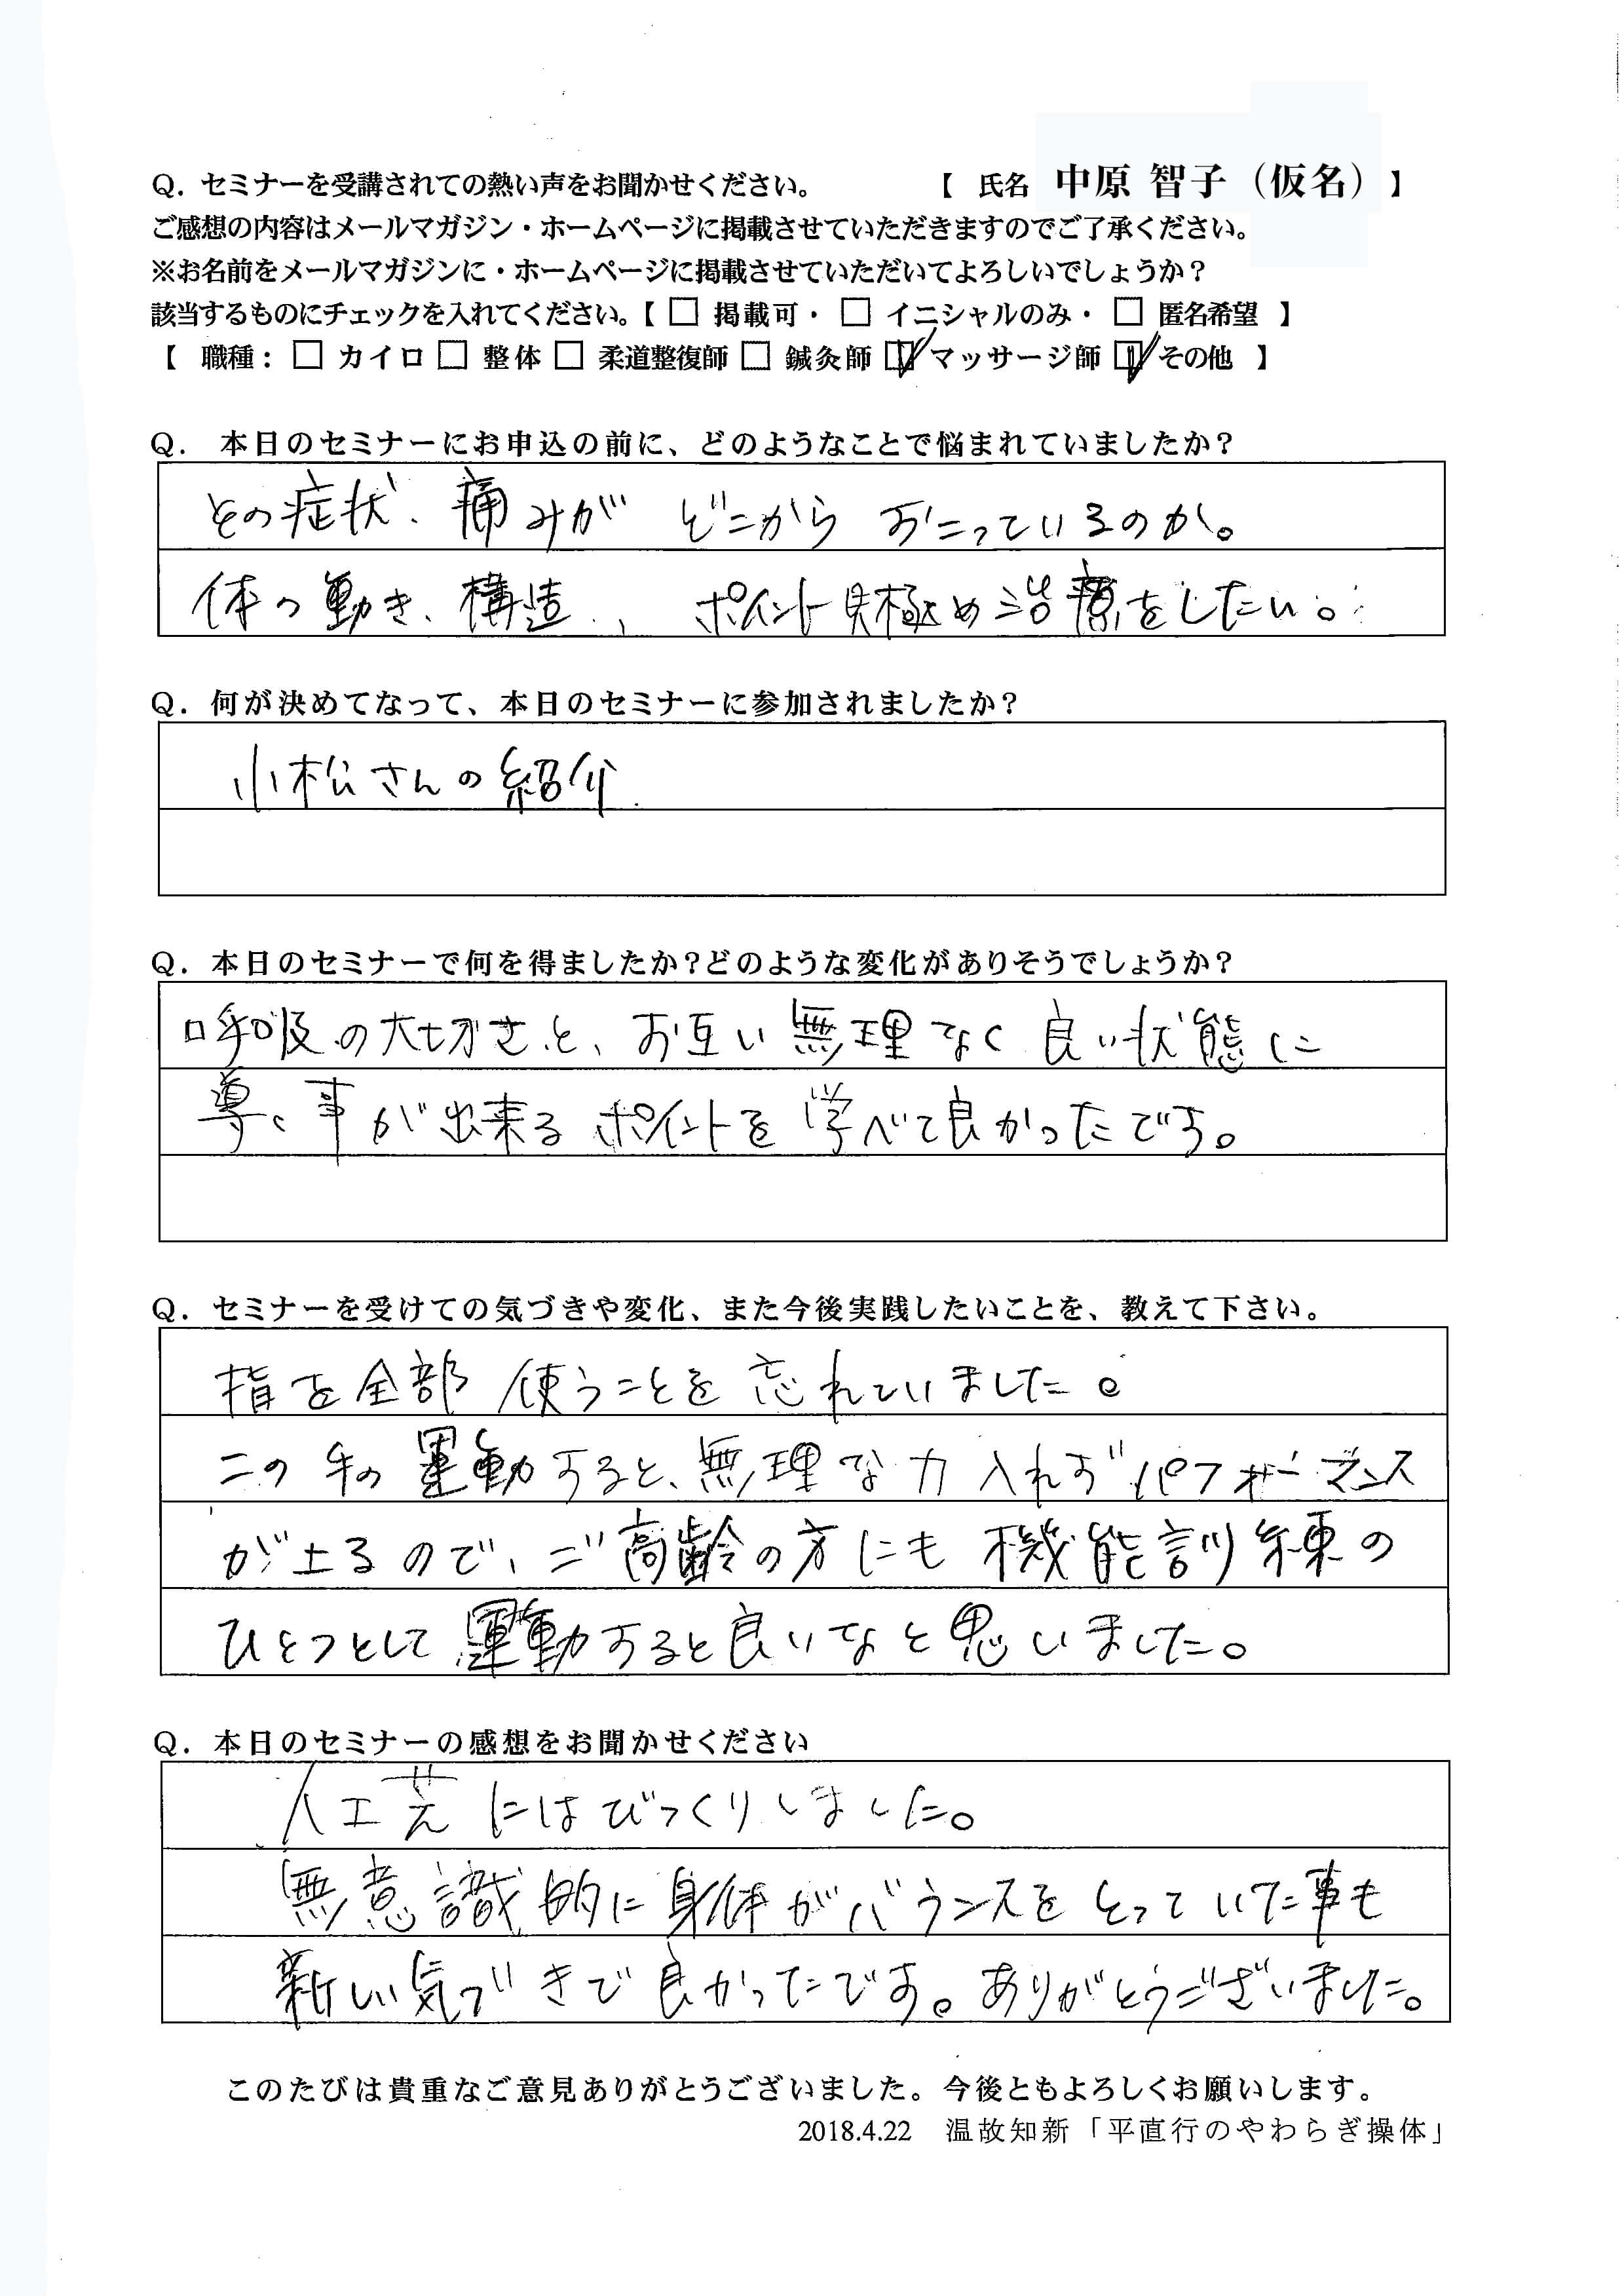 Q. セミナーを受講されての熱い声をお聞かせください。 【 氏名 中原 智子（仮名）】
ご感想の内容はメールマガジン・ホームページに掲載させていただきますのでご了承ください。
※お名前をメールマガジンに・ホームページに掲載させていただいてよろしいでしょうか？
該当するものにチェックを入れてください。【 □ 掲載可・ □ イニシャルのみ・ □ 匿名希望 】
【 職種： □ カイロ □ 整体 □ 柔道整復師 □ 鍼灸師 ☑ マッサージ師 ☑ その他 】
Q. 本日のセミナーにお申込の前に、どのようなことで悩まれていましたか？
その症状、痛みが どこから おこっているのか。
体の動き、構造、、ポイント見極め治療をしたい。
Q. 何が決めてなって、本日のセミナーに参加されましたか？
小松さんの紹介.
Q. 本日のセミナーで何を得ましたか？どのような変化がありそうでしょうか？
呼吸の大切さと、お互い無理なく良い状態に
導く事が出来るポイントを学べて良かったです。
Q. セミナーを受けての気づきや変化、また今後実践したいことを、教えて下さい。
指を全部使うことを忘れていました。
この手の運動すると、無理な力入れずパフォーマンス
が上るので、ご高齢の方にも機能訓練の
ひとつとして運動すると良いなと思いました。
Q. 本日のセミナーの感想をお聞かせください
人工芝にはびっくりしました。
無意識的に身体がバランスをとっていた事も
新しい気づきで良かったです。ありがとうございました。
このたびは貴重なご意見ありがとうございました。今後ともよろしくお願いします。
2018.4.22 温故知新「平直行のやわらぎ操体」